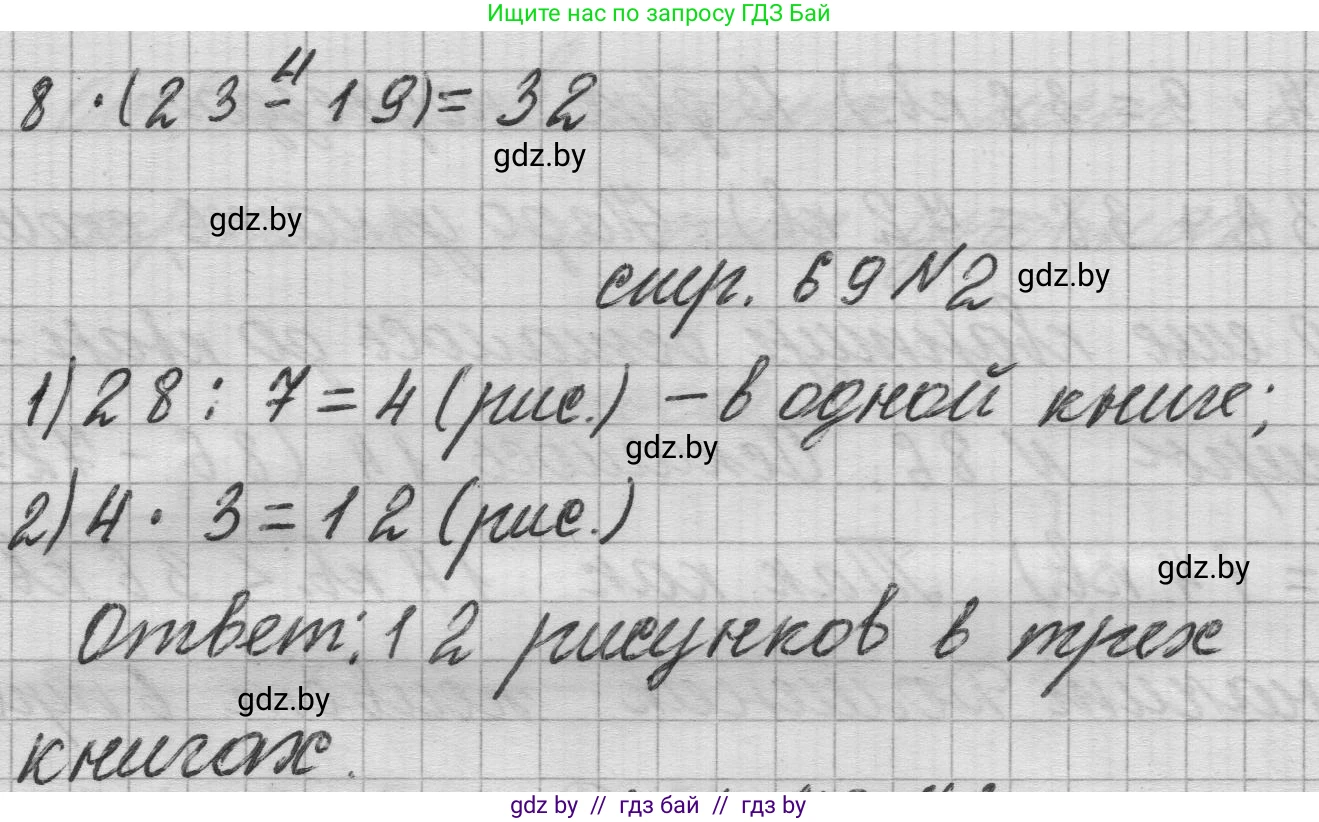 Ищите нас по запросу ГДЗ Бай
4
8 · (23 - 19) = 32
gdz.by
gdz.by
стр. 69 N2 gdz.by
1) 28 : 7 = 4 (рис.) – в одной книге;
gdz.by
2) 4 · 3 = 12 (рис.)
gdz.by
Ответ: 12 рисунков в трех
gdz.by
книгах.
gdz by // гдз бай // gdz by